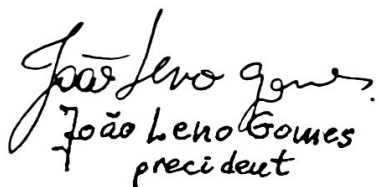 João Leno Gomes.
João Leno Gomes
precident